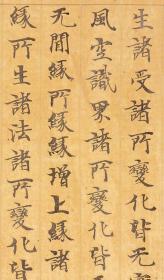 生諸受諸所變化皆无
風空識界諸所變化皆
无間緣所緣緣增上緣諸
緣所生諸法諸所變化皆